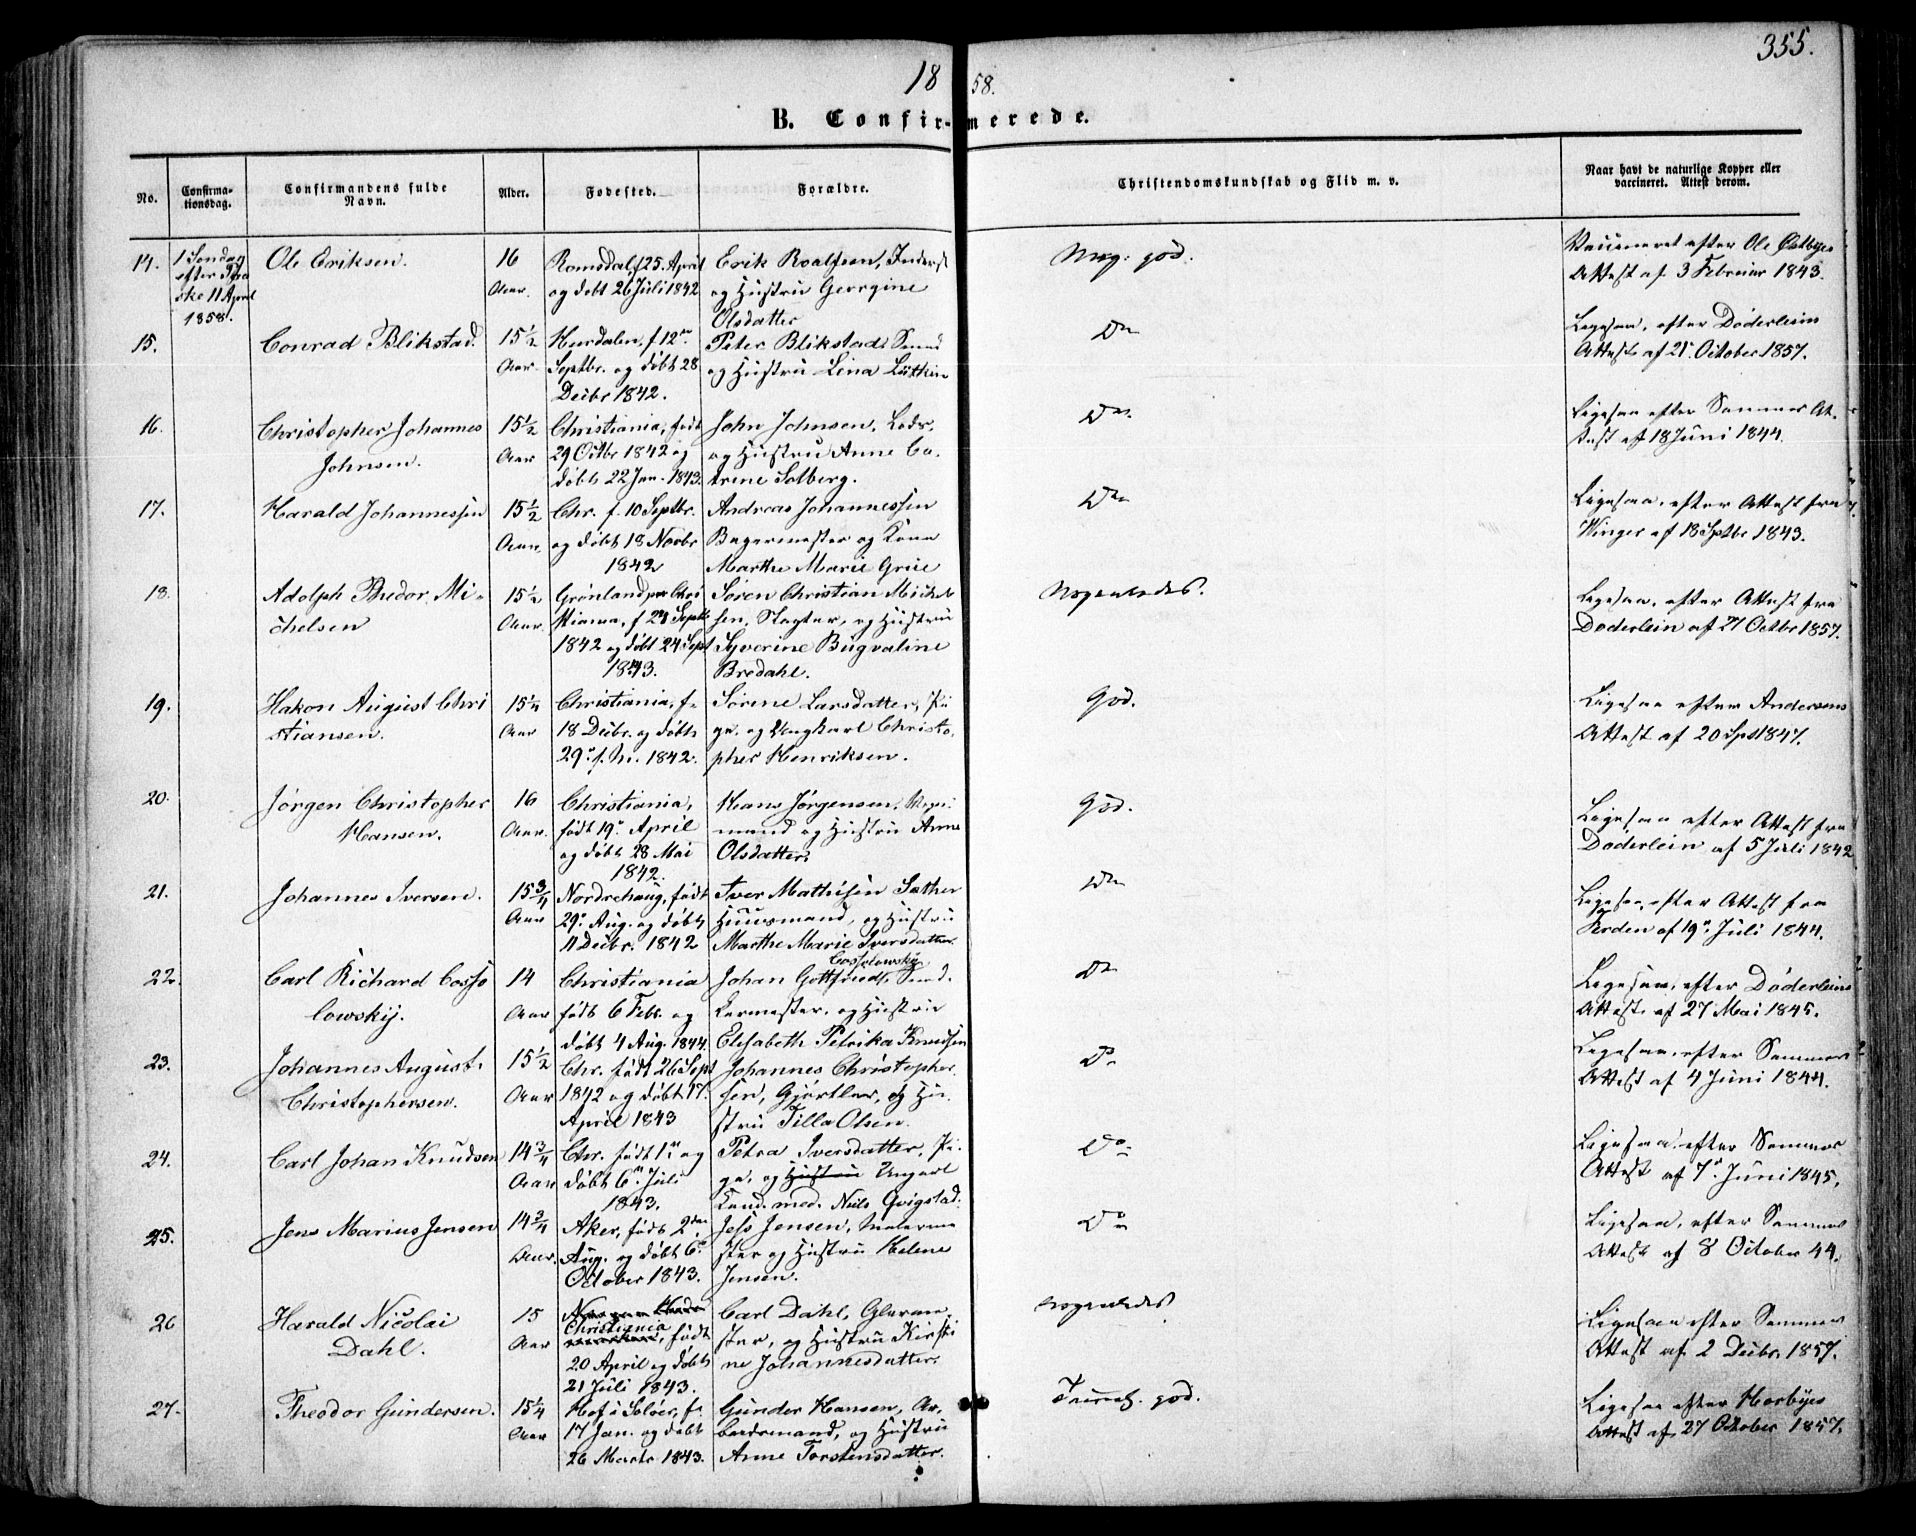 355.
1858.
B. Confirmerede.
No.
Confirmationsdag.
Confirmandens fulde Navn.
Alder.
Fødested.
Forældre.
Christendomskundskab og Flid m. v.
Naar havt de naturlige Kopper eller vaccineret. Attest derom.
14.
1 Søndag
efter Paa
ske 11 April
1858.
Ole Eriksen.
16
Aar.
Romsdal, f 25. April
og døbt 26 Juli 1842
Erik Roalfsen, Inderst
og Hustru Georgine
Olsdatter
Meg. god.
Vaccineret efter Ole Østbyes
Attest af 3 Februar 1843.
15.
Conrad Blikstad.
15 1/2
Aar.
Hurdalen, f 12te
Septbr. og døbt 28
Decbr 1842.
Peter Blikstad, Smed
og Hustru Lina Lütken
Do
Ligesaa, efter Døderlein
Attest af 21. October 1857.
16.
Christopher Johannes
Johnsen.
15 1/2
Aar.
Christiania, født
29 Octbr 1842 og
døbt 22 Jan. 1843.
John Johnsen, Lods,
og Hustru Anne Ca-
trine Solberg.
Do
Ligesaa efter Sommer At-
test af 18 Juni 1844.
17.
Harald Johannessen
15 1/2
Aar.
Chr. f. 10 Septbr.
og døbt 18 Novbr
1842
Andreas Johannessen
Bagermester og Kone
Marthe Marie Grüe
Do
Ligesaa, efter Attest fra
Winger af 18 Septbr 1843.
18.
Adolph Thedor Mi-
chelsen
15 1/2
Aar.
Grønland, Chri
stiania, f 29 Septbr
1842 og døbt 24 Sept
1843.
Søren Christian Michel
sen, Slagter, og Hustru
Syverine Bugvaline
Bredahl.
Nogenledes.
Ligesaa, efter Attest fra
Døderlein af 21 Octbr 1857.
19.
Hakon August Chri
stiansen.
15 1/4
Aar
Christiania, f.
18 Decbr. og døbt
29. f. M. 1842.
Sørene Larsdatter, Pi
ge, og Ungkarl Christo-
pher Henriksen.
God.
Ligesaa efter Andersens
Attest af 20 Sept 1847.
20.
Jørgen Christopher
Hansen.
16
Aar.
Christiania,
født 19. April
og døbt 28 Mai
1842.
Hans Jørgensen, Vogn-
mand og Hustru Anne
Olsdatter.
God.
Ligesaa efter Attest fra
Døderlein af 5 Juli 1842
21.
Johannes Iversen.
15 3/4
Aar
Nordrehaug, født
29. Aug. og døbt
11 Decbr. 1842
Iver Mathisen Sæther
Huusmand, og Hustru
Marthe Marie Iversdatter.
Do
Ligesaa, efter Attest fra
af 19. Juli 1844.
22.
Carl Richard Cosso
lowskij.
14
Aar
Christiania
født 6 Febr. og
døbt 4 Aug. 1844.
Cossolowskij
Johan Gottfriedt, Sned-
kermester, og Hustru
Elisabeth Petrika Knudsen
Do
Ligesaa, efter Døderleins
Attest af 27 Mai 1845.
23.
Johannes August
Christophersen.
15 1/2
Aar
Chr. født 26 Sept
1842 og døbt 17.
April 1843
Johannes Christopher
sen, Gjørtler, og Hu-
stru Tilla Olsen.
Do
Ligesaa, efter Sommers
Attest af 4 Juni 1844.
24.
Carl Johan Knudsen
14 3/4
Aar
Chr. født 1. og
døbt 6. Juli
1843.
Petra Iversdatter, Pi-
ge, og Hustru Ungarl
Cand. med. Niels Qvigstad.
Do
Ligesaa, efter Sommer
Attest af 7. Juni 1845.
25.
Jens Marius Jensen
14 3/4
Aar.
Aker, født 2den
Aug. og døbt 6.
October 1843.
Jess Jensen, Malerme
ster og Hustru Helene
Jensen.
Do
Ligesaa, efter Sommer
Attest af 8 October 44.
26
Harald Nicolai
Dahl.
15
Aar
Christiania
født
20 April og døbt
21 Juli 1843.
Carl Dahl, Glarme-
ster, og Hustru Kirsti
ne Johannesdatter.
Nogenledes
Ligesaa efter Sommer
Attest af 2 Decbr. 1857.
27.
Theodor Gundersen.
15 1/4
Aar
Hof i Soløer, f.
17 Jan. og døbt
26 Marts 1843.
Gunder Hansen, Ar-
beidsmand, og Hustru
Anne Torstensdatter.
god.
Ligesaa efter Horbyes
Attest af 27 October 1857.